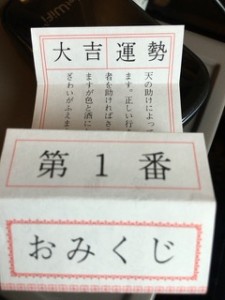 大吉運勢
天の助けによって
ます。正しい行
者を助ければき
ますが色と酒に
ざわいがふえま
第1番
おみくじ